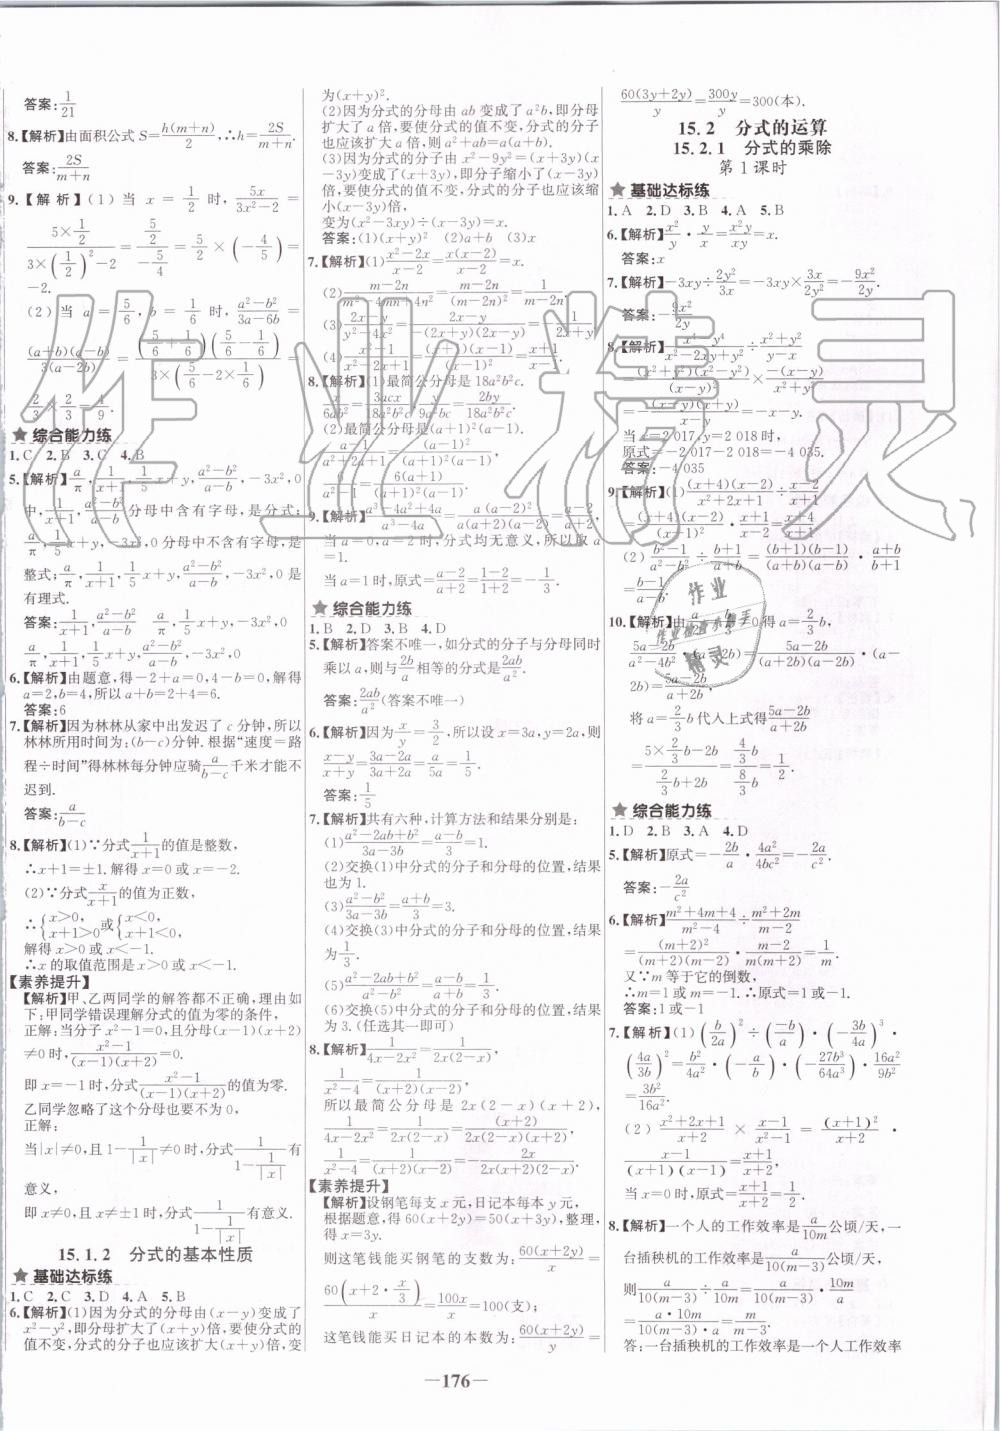 答案:1/21
8.【解析】由面积公式 S=h(m+n)/2,∴h=2S/(m+n).
答案:2S/(m+n)
9.【解析】(1)当 x=1/2 时,5x/(3x²-2)=
(5×1/2)/(3×(1/2)²-2)=(5/2)/(-5/4)=5/2×(-4/5)=
-2.
(2)当 a=5/6,b=1/6 时,(a²-b²)/(3a-6b)=
(a+b)(a-b)/3(a-2b)=(5/6+1/6)(5/6-1/6)/3×(5/6-2×1/6)=
2/3×2/3=4/9.
★ 综合能力练
1.C 2.B 3.C 4.B
5.【解析】a/π,1/(x+1),1/5x+y,(a²-b²)/(a-b),-3x²,0
中,1/(x+1),(a²-b²)/(a-b)分母中含有字母,是分式;
a/π,1/5x+y,-3x²,0分母中不含有字母,是
整式;a/π,1/(x+1),1/5x+y,(a²-b²)/(a-b),-3x²,0是
有理式.
答案:1/(x+1),(a²-b²)/(a-b) a/π,1/5x+y,-3x²,0
a/π,1/(x+1),1/5x+y,(a²-b²)/(a-b),-3x²,0
6.【解析】由题意,得-2+a=0,4-b=0,解得
a=2,b=4,所以a+b=2+4=6.
答案:6
7.【解析】因为林林从家中出发迟了c分钟,所以
林林所用时间为:(b-c)分钟.根据“速度=路
程÷时间”得林林每分钟应骑a/(b-c)千米才能不
迟到.
答案:a/(b-c)
8.【解析】(1)∵分式1/(x+1)的值是整数,
∴x+1=±1.解得x=0或x=-2.
(2)∵分式x/(x+1)的值为正数,
∴{x>0,x+1>0或{x<0,x+1<0,
解得x>0或x<-1.
∴x的取值范围是x>0或x<-1.
【素养提升】
【解析】甲、乙两同学的解答都不正确,理由如
下:甲同学错误理解分式的值为零的条件,
正解:当分子x²-1=0,且分母(x-1)(x+2)
≠0时,(x²-1)/(x-1)(x+2)=0.
即x=-1时,分式(x²-1)/(x-1)(x+2)的值为零.
乙同学忽略了这个分母也要不为0,
正解:
当|x|≠0,且1-1/|x|≠0时,分式1/(1-1/|x|)有
意义,
即x≠0,且x≠±1时,分式1/(1-1/|x|)有意义.
15.1.2 分式的基本性质
★ 基础达标练
1.C 2.C 3.D 4.A 5.B
6.【解析】(1)因为分式的分母由(x-y)变成了
x²-y²,即分母扩大了(x+y)倍,要使分式的值
不变,分式的分子也应该扩大(x+y)倍,变
为(x+y)².
(2)因为分式的分母由ab变成了a²b,即分母
扩大了a倍,要使分式的值不变,分式的分子
也应该扩大a倍,即为a(a+b)=a²+ab.
(3)因为分式的分子由x²-9y²=(x+3y)(x
-3y)变成了(x+3y),即分子缩小了(x-3y)
倍,要使分式的值不变,分式的分母也应该缩
小(x-3y)倍,
变为(x²-3xy)÷(x-3y)=x.
答案:(1)(x+y)² (2)a+b (3)x
7.【解析】(1)(x²-2x)/(x-2)=x(x-2)/(x-2)=x.
(2)(m-2n)/(m²-4mn+4n²)=(m-2n)/(m-2n)²=1/(m-2n).
(3)(2x-y)/(y²-4x²)=(2x-y)/-(2x+y)(2x-y)=-1/(2x+y).
(4)(x²-1)/(x²-2x+1)=(x+1)(x-1)/(x-1)²=(x+1)/(x-1).
8.【解析】(1)最简公分母是18a²b²c.
x/6ab²=3acx/18a²b²c,y/9a²bc=2by/18a²b²c.
(2)最简公分母是(a+1)²(a-1).
(a-1)/(a²+2a+1)=(a-1)²/(a+1)²(a-1),
6/(a²-1)=6(a+1)/(a+1)²(a-1).
9.【解析】(a³-4a²+4a)/(a³-4a)=a(a-2)²/a(a+2)(a-2)=(a-2)/(a+2).
当a=0,a=2,a=-2时,分式均无意义,所以取a
=1.
当a=1时,原式=(a-2)/(a+2)=(1-2)/(1+2)=-1/3.
★ 综合能力练
1.B 2.D 3.B 4.D
5.【解析】答案不唯一,如分式的分子与分母同时
乘以a,则与2b/a相等的分式是2ab/a².
答案:2ab/a²(答案不唯一)
6.【解析】因为x/y=3/2,所以设x=3a,y=2a,则
(x-y)/(x+y)=(3a-2a)/(3a+2a)=a/5a=1/5.
答案:1/5
7.【解析】共有六种,计算方法和结果分别是:
(1)(a²-2ab+b²)/(3a-3b)=(a-b)/3=1.
(2)交换(1)中分式的分子和分母的位置,结果
也为1.
(3)(a²-b²)/(3a-3b)=(a+b)/3=3.
(4)交换(3)中分式的分子和分母的位置,结果
为1/3.
(5)(a²-2ab+b²)/(a²-b²)=(a-b)/(a+b)=1/3.
(6)交换(5)中分式的分子和分母的位置,结果
为3.(任选其一即可)
8.【解析】1/(4x-2x²)=1/2x(2-x),
1/(x²-4)=1/(x+2)(x-2).
所以最简公分母是2x(2-x)(x+2),
1/(4x-2x²)=1/2x(2-x)=(x+2)/2x(2-x)(x+2),
1/(x²-4)=1/(x+2)(x-2)=-2x/2x(x+2)(2-x).
【素养提升】
【解析】设钢笔每支x元,日记本每本y元,
根据题意,得60(x+2y)=50(x+3y),整理,
得x=3y.
则这笔钱能买钢笔的支数为:60(x+2y)/x=
60(x+2·x/3)/x=100x/x=100(支);
这笔钱能买日记本的本数为:60(x+2y)/y=
60(3y+2y)/y=300y/y=300(本).
15.2 分式的运算
15.2.1 分式的乘除
第1课时
★ 基础达标练
1.A 2.D 3.B 4.A 5.B
6.【解析】x²/y·y/x=x²y/xy=x.
答案:x
7.【解析】-3xy÷2y²/3x=-3xy×3x/2y²=-9x²/2y.
答案:-9x²/2y
8.【解析】(x⁴-y⁴)/(x²-2xy+y²)÷(x²+y²)/(y-x)
=(x²+y²)(x²-y²)/(x-y)²·-(x-y)/(x²+y²)
=-(x-y)(x+y)/(x-y)=-(x+y).
当x=2 017,y=2 018时,
原式=-2 017-2 018=-4 035.
答案:-4 035
9.【解析】(1)(x+4)(x-2)/(x²+2x+1)·(x+1)/(x-2)
=(x+4)(x-2)/(x+1)²·(x+1)/(x-2)=(x+4)/(x+1).
(2)(b²-1)/(a²-b²)÷(b+1)/(a+b)=(b+1)(b-1)/(a+b)(a-b)·(a+b)/(b+1)
=(b-1)/(a-b).
10.【解析】由a/2=b/3≠0得a=2/3b,
(5a-2b)/(a²-4b²)·(a-2b)=(5a-2b)/(a+2b)(a-2b)·(a-
2b)=(5a-2b)/(a+2b),
将a=2/3b代入上式得(5a-2b)/(a+2b)
=(5×2/3b-2b)/(2/3b+2b)=(4/3b)/(8/3b)=1/2.
★ 综合能力练
1.D 2.B 3.A 4.D
5.【解析】原式=-2b/a·4a²/4bc²=-2a/c².
答案:-2a/c²
6.【解析】(m²+4m+4)/(m²-4)÷(m²+2m)/(m-2)
=(m+2)²/(m+2)(m-2)·(m-2)/m(m+2)=1/m.
又∵m等于它的倒数,
∴m=1或m=-1.∴原式=1或-1.
答案:1或-1
7.【解析】(1)(b/2a)²÷(-b/a)·(-3b/4a)³·
(4a/3b)²=b²/4a²·(-a/b)·(-27b³/64a³)·16a²/9b²
=3b²/16a².
(2)(x²+2x+1)/(x+2)×(x-1)/(x²-1)=(x+1)²/(x+2)·
(x-1)/(x+1)(x-1)=(x+1)/(x+2),
当x=0时,原式=(x+1)/(x+2)=1/2.
8.【解析】一个人的工作效率是a/10m公顷/天,一
台插秧机的工作效率是a/10(m-3)公顷/天,
则a/10(m-3)÷a/10m=a/10(m-3)·10m/a
=a·10m/10(m-3)·a=m/(m-3).
答:一台插秧机的工作效率是一个人工作效率
—176—
作业精灵
作业
精灵